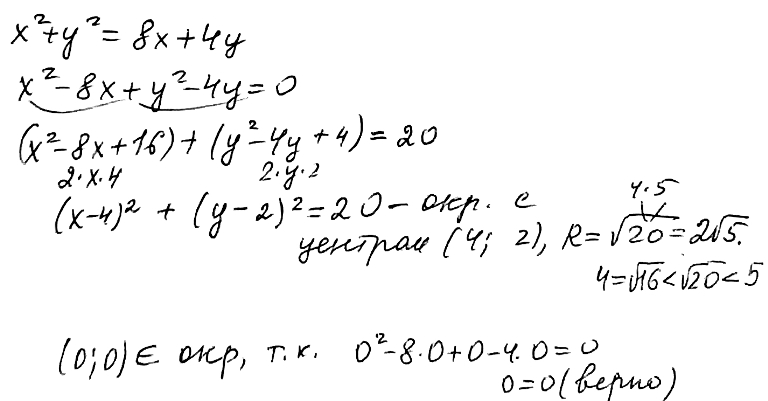 x²+y²= 8x+4y
x²-8x+y²-4y=0
(x²-8x+16)+(y²-4y+4)=20
2·x·4 2·y·2
4·5
(x-4)² + (y-2)²=20- окр. с
центром (4; 2), R=√20=2√5.
4=√16<√20<5
(0;0)∈ окр, т.к. 0²-8·0+0-4·0=0
0=0(верно)